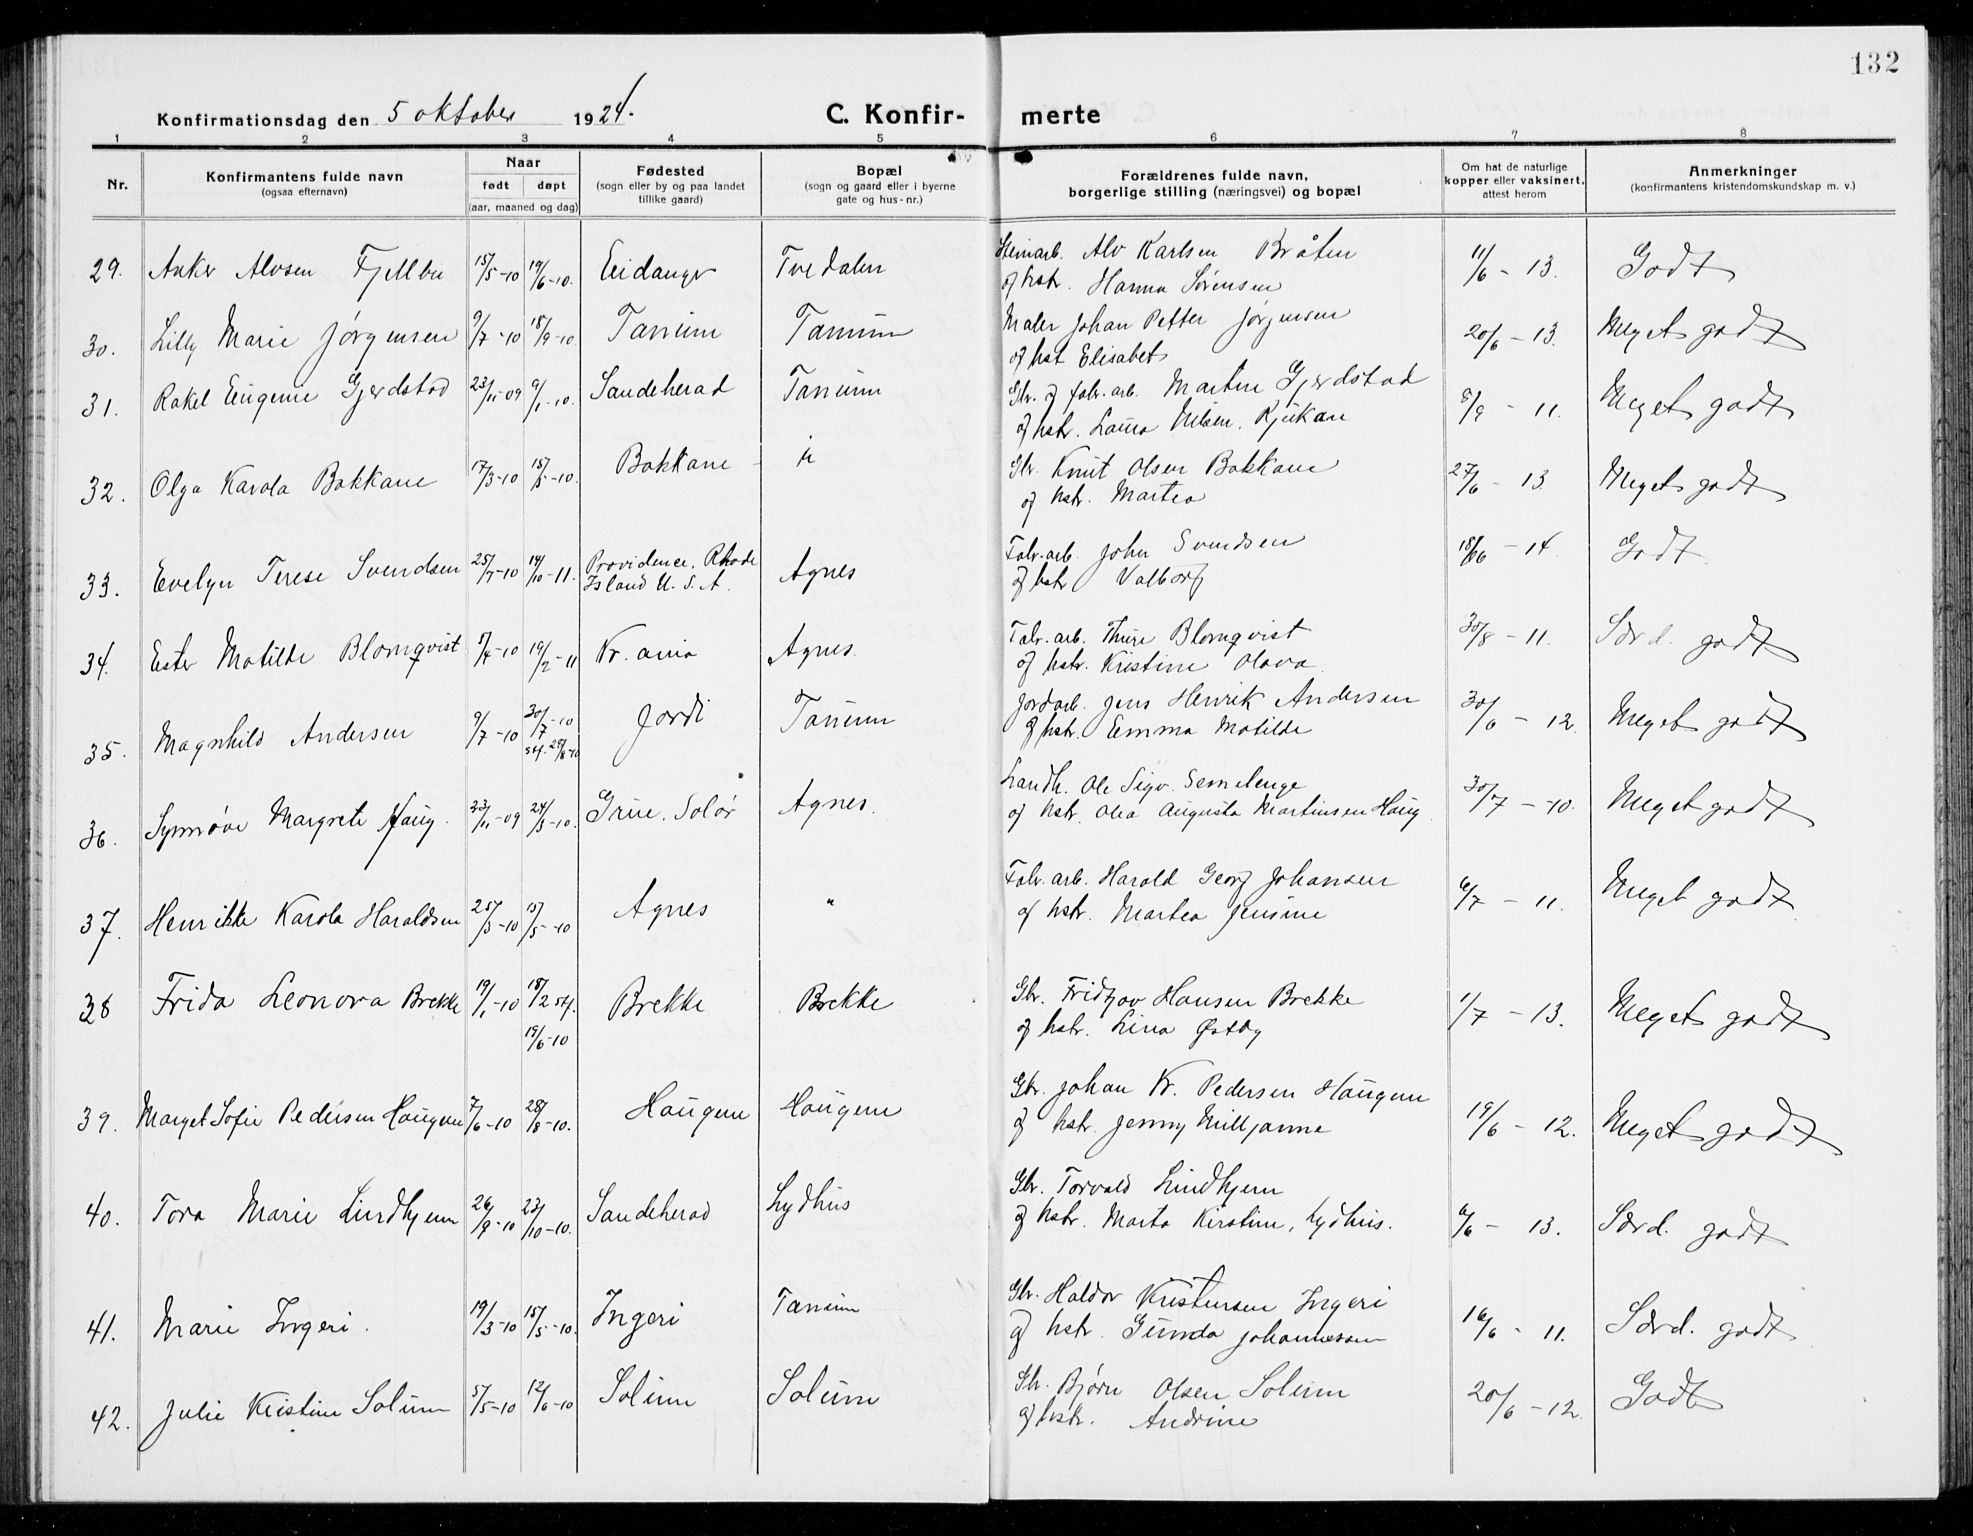 132
Konfirmationsdag den 5 oktober 1924. C. Konfir- merte
1 2 3 4 5 6 7 8
Nr. Konfirmantens fulde navn (ogsaa efternavn) Naar født døpt (aar, maaned og dag) Fødested (sogn eller by og paa landet tillike gaard) Bopæl (sogn og gaard eller i byerne gate og hus-nr.) Forældrenes fulde navn, borgerlige stilling (næringsvei) og bopæl Om hat de naturlige kopper eller vaksinert, attest herom Anmerkninger (konfirmantens kristendomskundskap m. v.)
29. Anker Alvsen Fjellbu 15/5-10 19/6-10. Eidanger Tvedalen Stenarb. Alv Karlsen Bråten 11/6 - 13. Godt
og hstr. Hanna Sørensen
30. Lilly Marie Jørgensen 9/7-10 18/9-10. Tanum Tanum Maler Johan Petter Jørgensen 20/6 - 13. Meget godt
og hst Elisabet
31. Rakel Eugenie Gjerdstad 23/11-09 9/1-10. Sandeherad Tanum Gbr. og fabr. arb. Martin Gjerdstad 8/9 - 11. Meget godt
og hstr. Laura Nilsen, Rjukan
32. Olga Karola Bakkane 17/3-10 15/5-10. Bakkane - " Gbr. Knut Olsen Bakkane 27/6 - 13 Meget godt
og hstr. Martea
33. Evelyn Terese Svendsen 25/7-10 14/10-11. Providence, Rhode Island U. S. A. Agnes Fabr. arb. John Svendsen 18/6 - 14 Godt
og hstr Valborg
34. Ester Matilde Blomqvist 7/4-10 19/2-11 Kr.ania Agnes Fabr. arb. Thure Blomqvist 30/8 - 11. Særd. godt
og hstr. Kristine Olava
35. Magnhild Andersen 9/7-10 30/7-10 stf. 28/8-10 Jordi Tanum Jordarb. Jens Henrik Andersen 30/6 - 12. Meget godt
og hstr. Emma Matilde
36. Synnøve Margrete Haug. 23/11-09 24/3-10. Grue, Solør Agnes. Landh. Ole Sigv. Semelenge 30/7 - 10. Meget godt
og hstr. Olea Augusta Martinsen Haug.
37. Henrikke Karola Haraldsen 25/3-10 15/5-10 Agnes " Fabr. arb. Harald Georg Johansen 6/7 - 11. Meget godt
og hstr. Martea Jensine
38 Frida Leonora Brekke 19/1-10 18/2 stf. 19/6-10 Brekke Brekke Gbr. Fridtjov Hansen Brekke 1/7 - 13. Meget godt
og hstr. Lina Østby
39. Marget Sofie Pedersen Haugene 7/6-10 28/8-10. Haugene Haugene Gbr. Johan Kr. Pedersen Haugene 19/6 - 12. Meget godt
og hstr. Jenny Milljanne
40. Tora Marie Lindhjem 26/9-10 23/10-10. Sandeherad Lydhus Gbr. Torvald Lindhjem 6/6 - 13. Særd. godt
og hstr. Marta Kirstine, Lydhus.
41. Marie Ingeri. 19/3-10 15/5-10. Ingeri Tanum Gbr. Haldor Kristensen Ingeri 16/6 - 11. Særd. godt
og hstr. Gunda Johannessen
42. Julie Kristine Solum 5/5-10 12/6-10 Solum Solum Gbr. Bjørn Olsen Solum 20/6 - 12. Godt
og hstr. Andrine